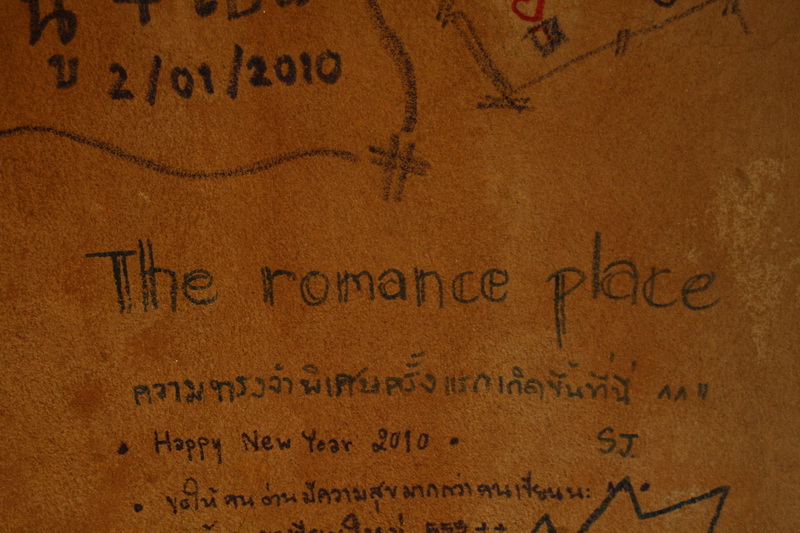 บ 2/01/2010
The romance place
ความทรงจำพิเศษครั้งแรกเกิดขึ้นที่นี่ ^^"
• Happy New Year 2010 •
SJ.
• ขอให้คนอ่านมีความสุขมากกว่าคนเขียนนะ ^^•
555++